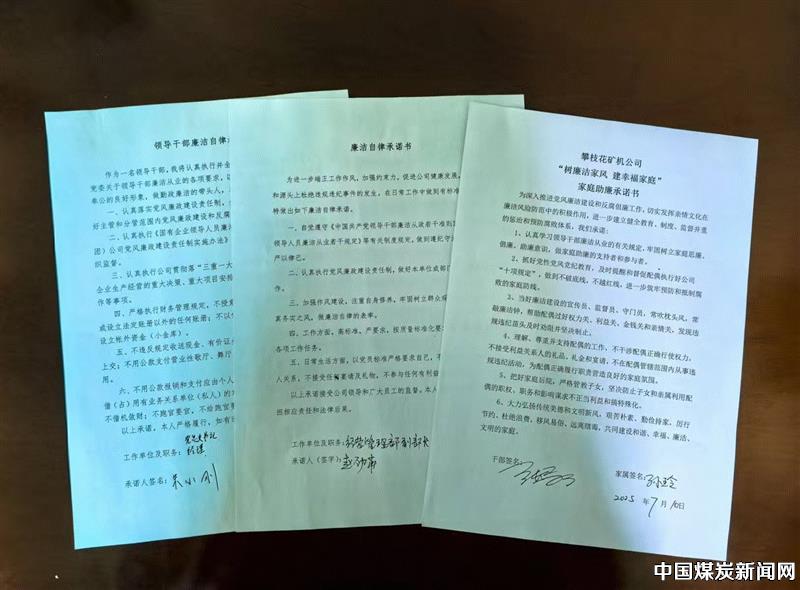 领导干部廉洁自律
作为一名领导干部,我将认真执行并全
党委关于领导干部廉洁从业的各项要求,以
单公的良好形象,做勤政廉洁的带头人,
一、认真落实党风廉政建设责任制,全
好主管和分管范围内党风廉政建设和反腐
二、认真执行《国有企业领导人员廉
团)公司党风廉政建设责任制实施办法》
织监督。
三、认真执行公司贯彻落“三重一大
企业生产经营的重大决策、重大项目安排
作等事项。
四、严格执行财务管理规定,不授意
或设立法定账册以外的任何账册;不以
设立帐外资金(小金库)。
五、不违反规定收送现金、有价证
上交;不用公款支付营业性歌厅、舞厅
用。
六、不用公款报销和支付应由个人
借(占)用有业务关系单位(私人)的
不借机敛财;不跑官要官,不给跑官要
以上承诺,本人严格履行,如有
工作单位及职务:经理
承诺人签名:
廉洁自律承诺书
为进一步端正工作作风,加强约束力,促进公司健康发展,
和源头上杜绝违规违纪事件的发生,在日常工作中做到有标准
特做出如下廉洁自律承诺。
一、自觉遵守《中国共产党领导干部廉洁从政若干准则
领导人员廉洁从业若干规定》等有关制度规定,做到遵纪守
严以律己。
二、认真执行党风廉政建设责任制,做好本单位或部门
作。
三、加强作风建设,注重自身修养,牢固树立群众
真务实之风,做廉洁自律的表率。
四、工作方面,高标准、严要求,按质量标准化要
各项工作任务。
五、日常生活方面,以党员标准严格要求自己,不
人关系,不接受任何宴请及礼物,不参与任何有利益
以上承诺接受公司领导和广大员工的监督。本人
担相应责任和法律后果。
工作单位及职务:经营管理部副部长
承诺人(签字):
攀枝花矿机公司
“树廉洁家风 建幸福家庭”
家庭助廉承诺书
为深入推进党风廉政建设和反腐倡廉工作,切实发挥亲情文化在
廉洁风险防范中的积极作用,进一步建立健全教育、制度、监督并重
的惩治和预防腐败体系,我们承诺:
1、认真学习领导干部廉洁从业的有关规定,牢固树立家庭思廉、
倡廉、助廉意识,做家庭助廉的支持者和参与者。
2、抓好党性党风党纪教育,及时提醒和督促配偶执行好公司
“十项规定”,做到不破底线,不越红线,进一步筑牢预防和抵制腐
败的家庭防线。
3、当好廉洁建设的宣传员、监督员、守门员,常吹枕头风,常
敲廉洁钟,帮助配偶过好权力关、利益关、金钱关和亲情关,发现违
规违纪苗头及时劝阻并坚决制止。
4、理解、尊重并支持配偶的工作,不干涉配偶正确行使权力,
不接受利益关系人的礼品、礼金和宴请,不在配偶管辖范围内从事违
规违纪活动,为配偶正确履行职责营造良好的家庭氛围。
5、把好家庭后院,严格管教子女,坚决防止子女和亲属利用配
偶的职权、职务和影响谋求不正当利益和搞特殊化。
6、大力弘扬传统美德和文明新风,艰苦朴素、勤俭持家、厉行
节约、杜绝浪费,移风易俗、远离烟毒,共同建设和谐、幸福、廉洁、
文明的家庭。
干部签名:
家属签名:孙玲
2025 年 7 月 10日
中国煤炭新闻网